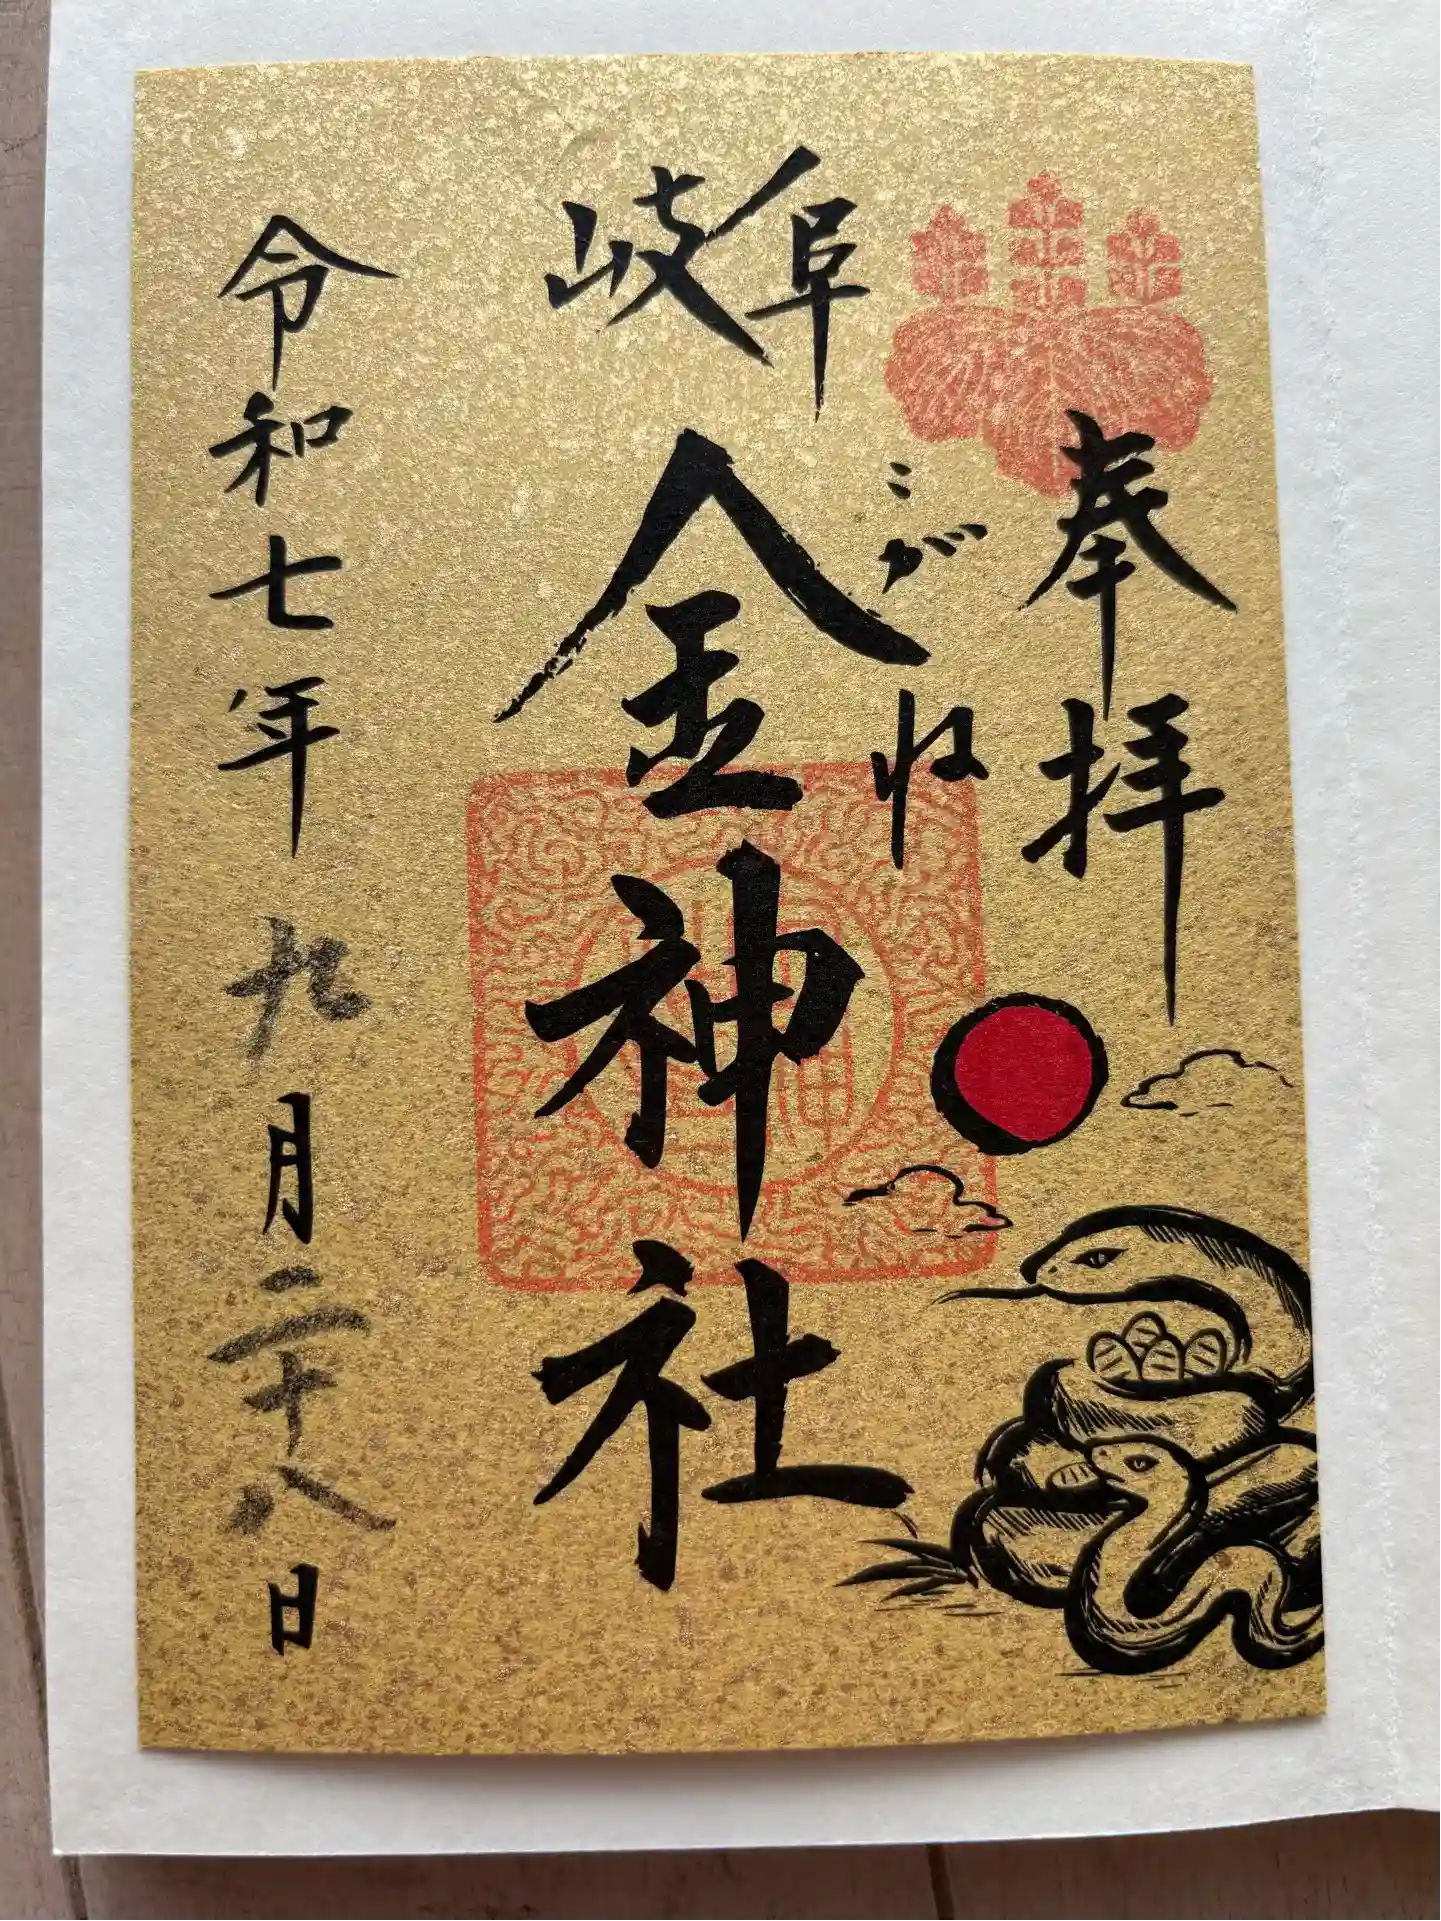 奉拝
岐阜
こがね
金神社
令和七年九月二十八日